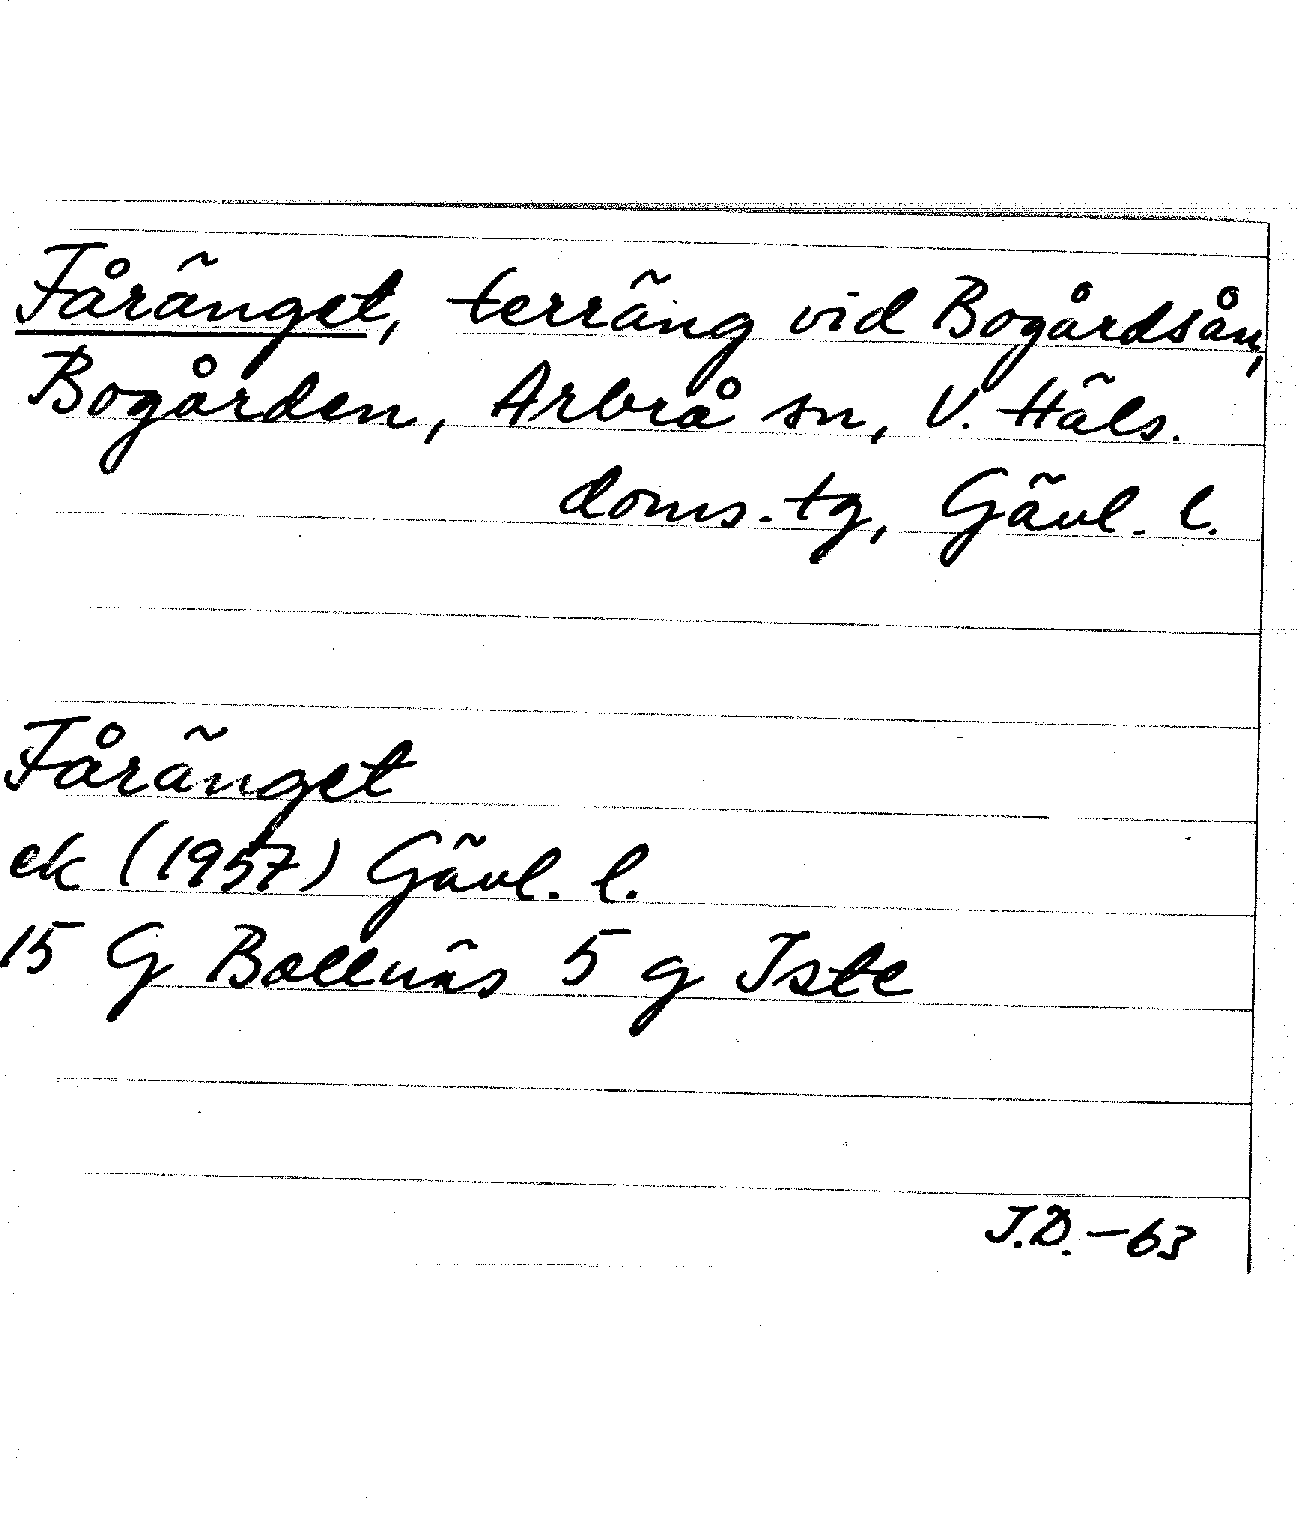 Fåränget, terräng vid Bogårdsån,
Bogården, Arbrå sn, V. Häls.
doms. tg, Gävl. l.
Fåränget
ek (1957) Gävl. l.
15 G Bollnäs 5 g Iste
J.D. - 63